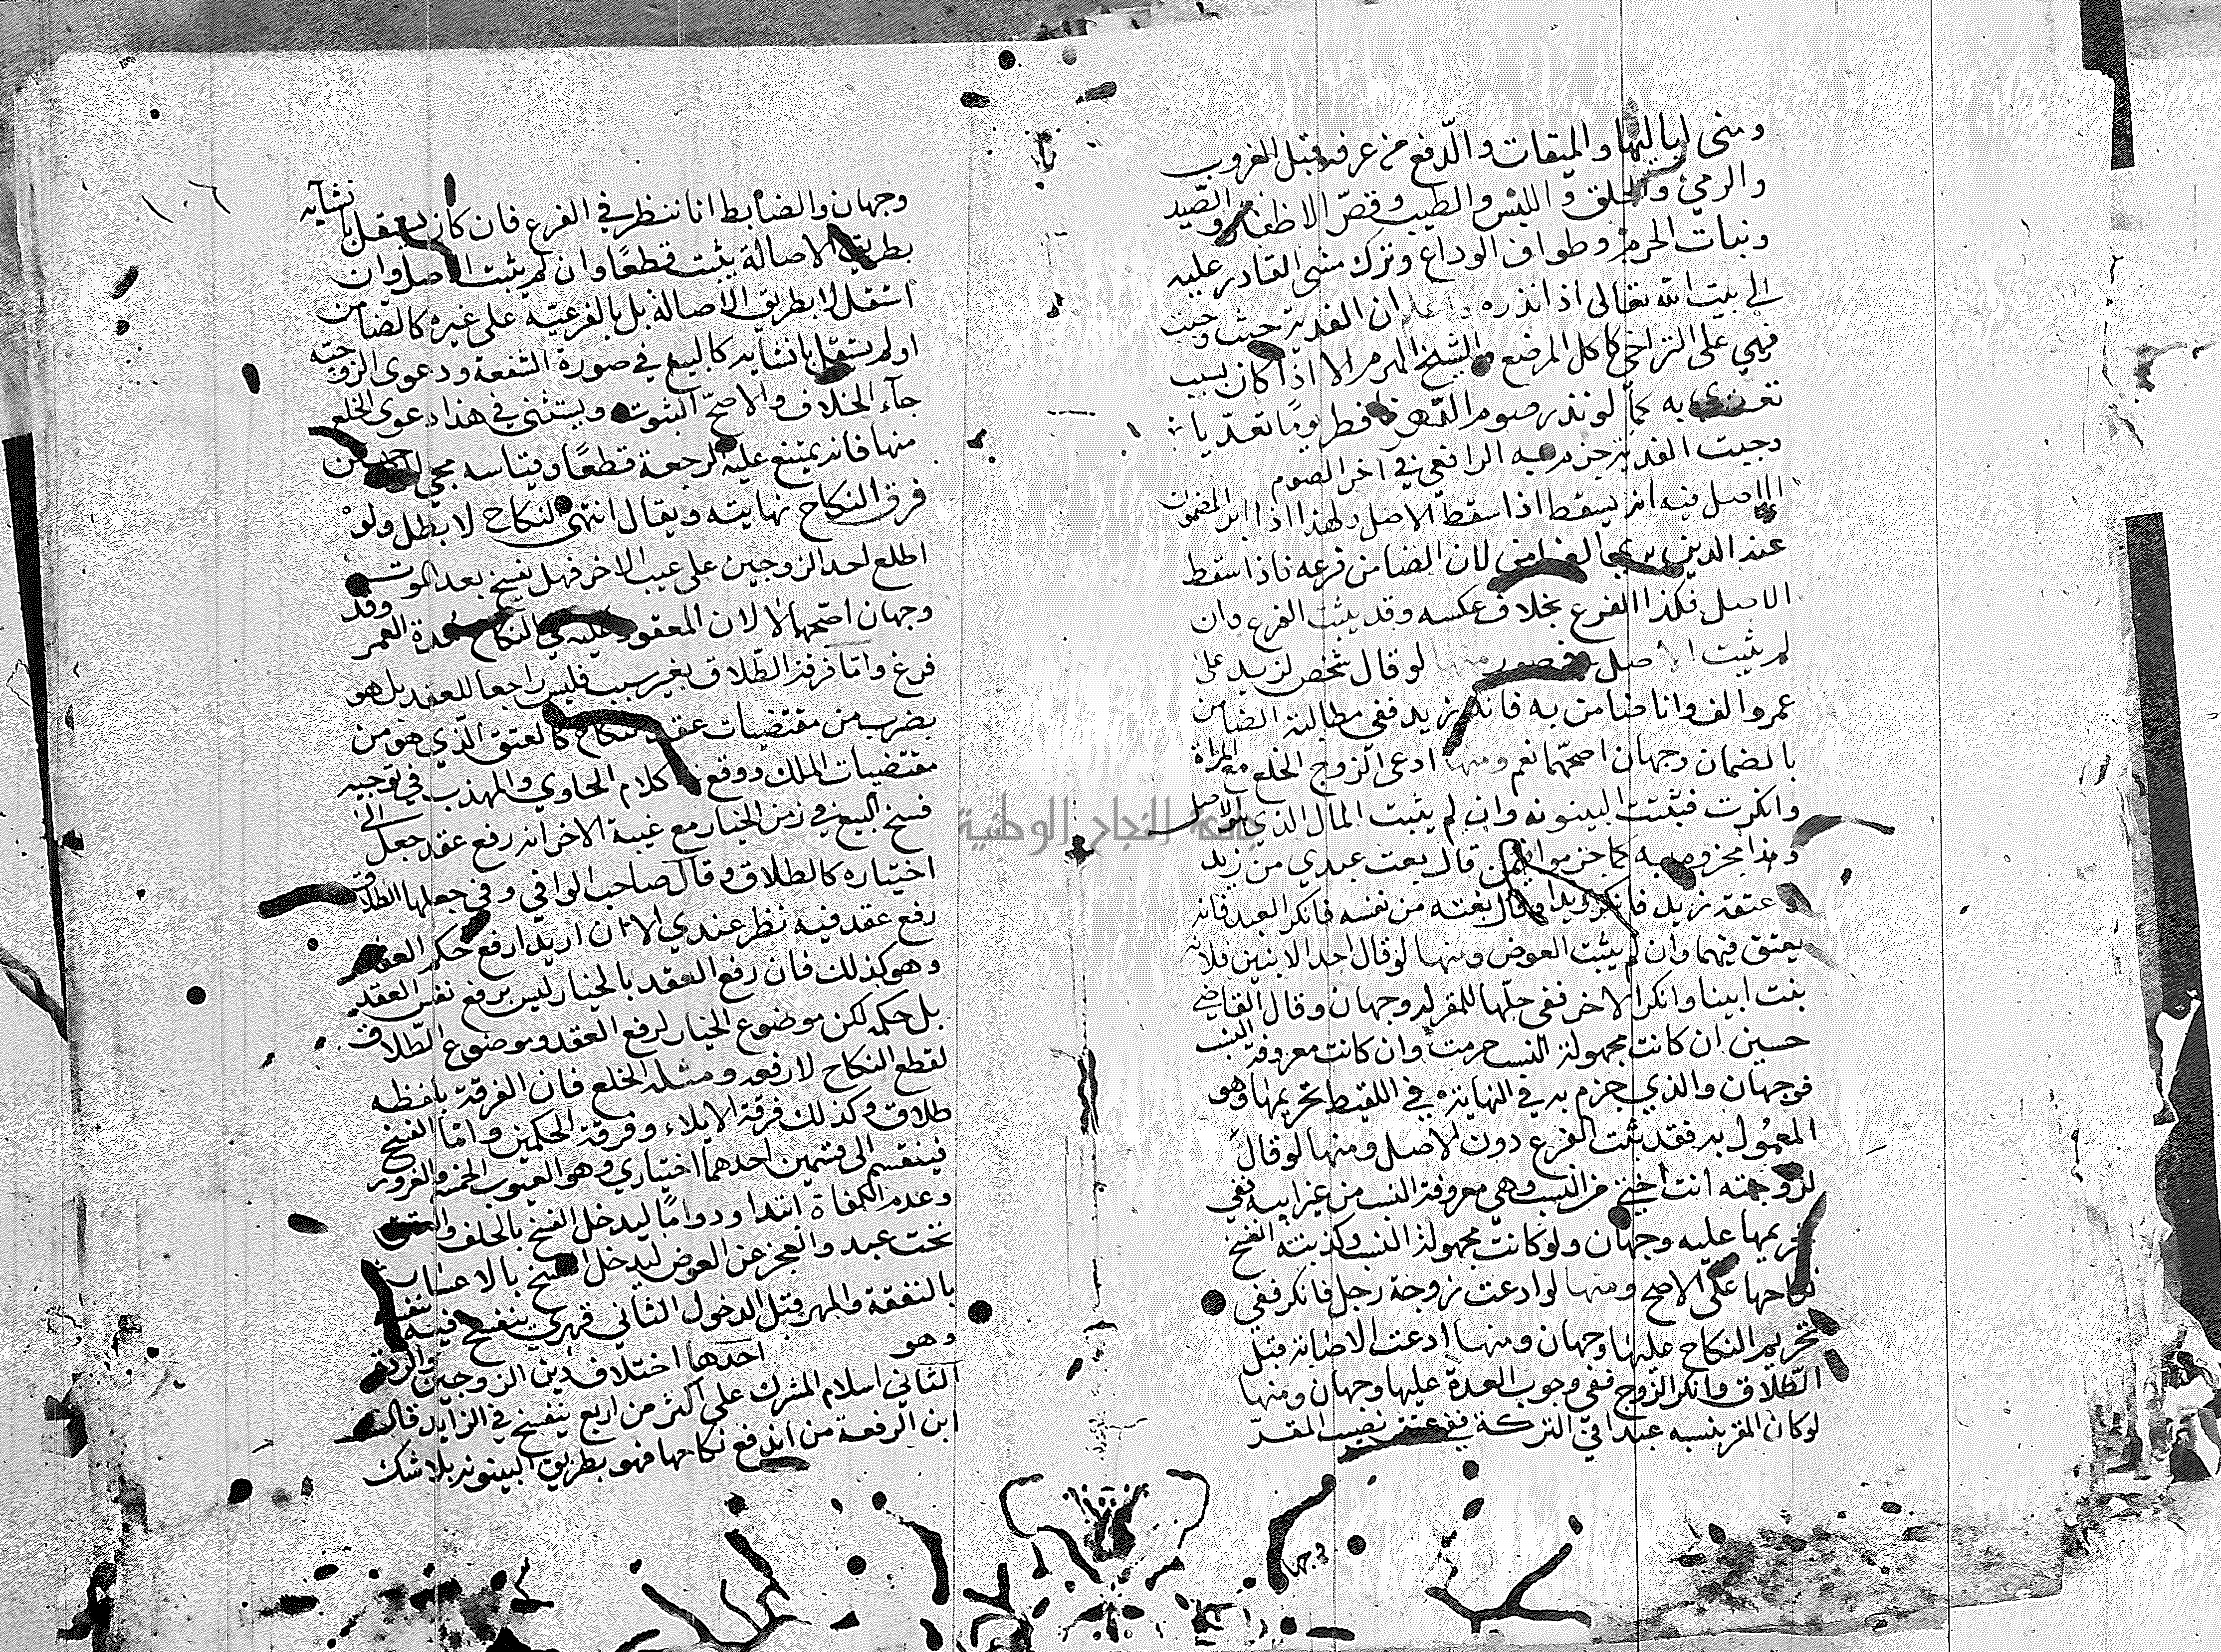 ومنى لياليها والميقات والدفع من عرفة قبل الغروب
والرمي والحلق واللبس والطيب وقص الاظفار والصيد
ونبات الحرم وطواف الوداع وترك مشي القادر عليه
الى بيت الله تعالى اذا نذره واعلم ان الفدية حيث وجبت
فهي على التراخي كاكل المرضع والشيخ الهرم الا اذا كان بسبب
به كما لو نذر صوم الدهر فافطر يوما تعديا
وجبت الفدية جزم به الرافعي في آخر الصوم
الاصل فيه انه يسقط اذا سقط الاصل ولهذا اذا ابرا المضمون
عند الدين لان الضامن فرعه فاذا سقط
الاصل فكذا الفرع بخلاف عكسه وقد يثبت الفرع وان
لم يثبت الاصل صور منها لو قال شخص لزيد على
عمرو الف وانا ضامن به فانكر زيد ففي مطالبة الضامن
بالضمان وجهان اصحهما نعم ومنها ادعى الزوج الخلع مع المراة
وانكرت فبثبتت البينونة وان لم يثبت المال الذي الاصل
وهذا مجزوم به كما جزموا قال بعت عبدي من زيد
واعتقه زيد فانكر زيد او قال بعته من نفسه فانكر العبد فانه
يعتق فيهما وان لم يثبت العوض ومنها لو قال احد الابنين فلانة
بنت ابينا وانكر الاخر ففي حلها للمقر له وجهان وقال القاضي
حسين ان كانت مجهولة النسب حرمت وان كانت معروفة النسب
فوجهان والذي جزم به في النهاية في اللقيط تحريمها وهو
المعمول به فقد يثبت الفرع دون الاصل ومنها لو قال
لزوجته انت اختي من النسب وهي معروفة النسب من غير ابيه ففي
تحريمها عليه وجهان ولو كانت مجهولة النسب وكذبته انفسخ
نكاحها على الاصح ومنها لو ادعت زوجة رجل فانكر ففي
تحريم النكاح عليها وجهان ومنها ادعت الاصابة قبل
الطلاق وانكر الزوج ففي وجوب العدة عليها وجهان ومنها
لو كان المقر بنسبه عبدا في التركة ففي عتق نصيب المقر
وجهان
١٠٦
وجهان والضابط انا ننظر في الفرع فان كان يستقل بانشايه
بطريق الاصالة يثبت قطعا وان لم يثبت الاصل وان
استقل لا بطريق الاصالة بل بالفرعيه على غيره كالضامن
او لم يستقل بانشايه كالبيع في صورة الشفعة ودعوى الزوجيه
جاء الخلاف والاصح الثبوت ويستثنى في هذا دعوى الخلع
منها فانه يمتنع عليه الرجعة قطعا وقياسه مجي
فرق النكاح نهايته ويقال انتهى النكاح لا بطل ولو
اطلع احد الزوجين على عيب الاخر فهل يفسخ بعد الموت
وجهان اصحهما لا لان المعقود عليه في النكاح مدة العمر وقد
فرغ واما فرقة الطلاق بغير سبب فليس راجعا للعقد بل هو
بضرب من مقتضيات عقد النكاح كالعتق الذي هو من
مقتضيات الملك ووقع في كلام الحاوي والمهذب في توجيه
فسخ البيع في زمن الخيار مع غيبة الاخر انه رفع عقد جعل الى
اختياره كالطلاق وقال صاحب الوافي وفي جعلها الطلاق
رفع عقد فيه نظر عندي الا ان اريد ارفع حكم العقد
وهو كذلك فان رفع العقد بالخيار ليس برفع نفس العقد
بل حكمه لكن موضوع الخيار لرفع العقد وموضوع الطلاق
لقطع النكاح لا رفعه ومثله الخلع فان الفرقة بلفظه
طلاق وكذلك فرقة الايلاء وفرقة الحكمين واما الفسخ
فينقسم الى قسمين احدهما اختياري وهو العيوب الخمسة والغرور
وعدم الكفاة ابتدا ودواما ليدخل الفسخ بالخلف والعتق
تحت عبد والعجز عن العوض ليدخل الفسخ بالاعسار
بالنفقة والمهر قبل الدخول الثاني قهري ينفسخ فيه بنفسه
وهو احدها اختلاف دين الزوجين والردة
الثاني اسلام المشرك على اكثر من اربع ينفسخ في الزايد قال
ابن الرفعة من اندفع نكاحها فهو بطريق البينونة بلا شك
جامعة النجاح الوطنية